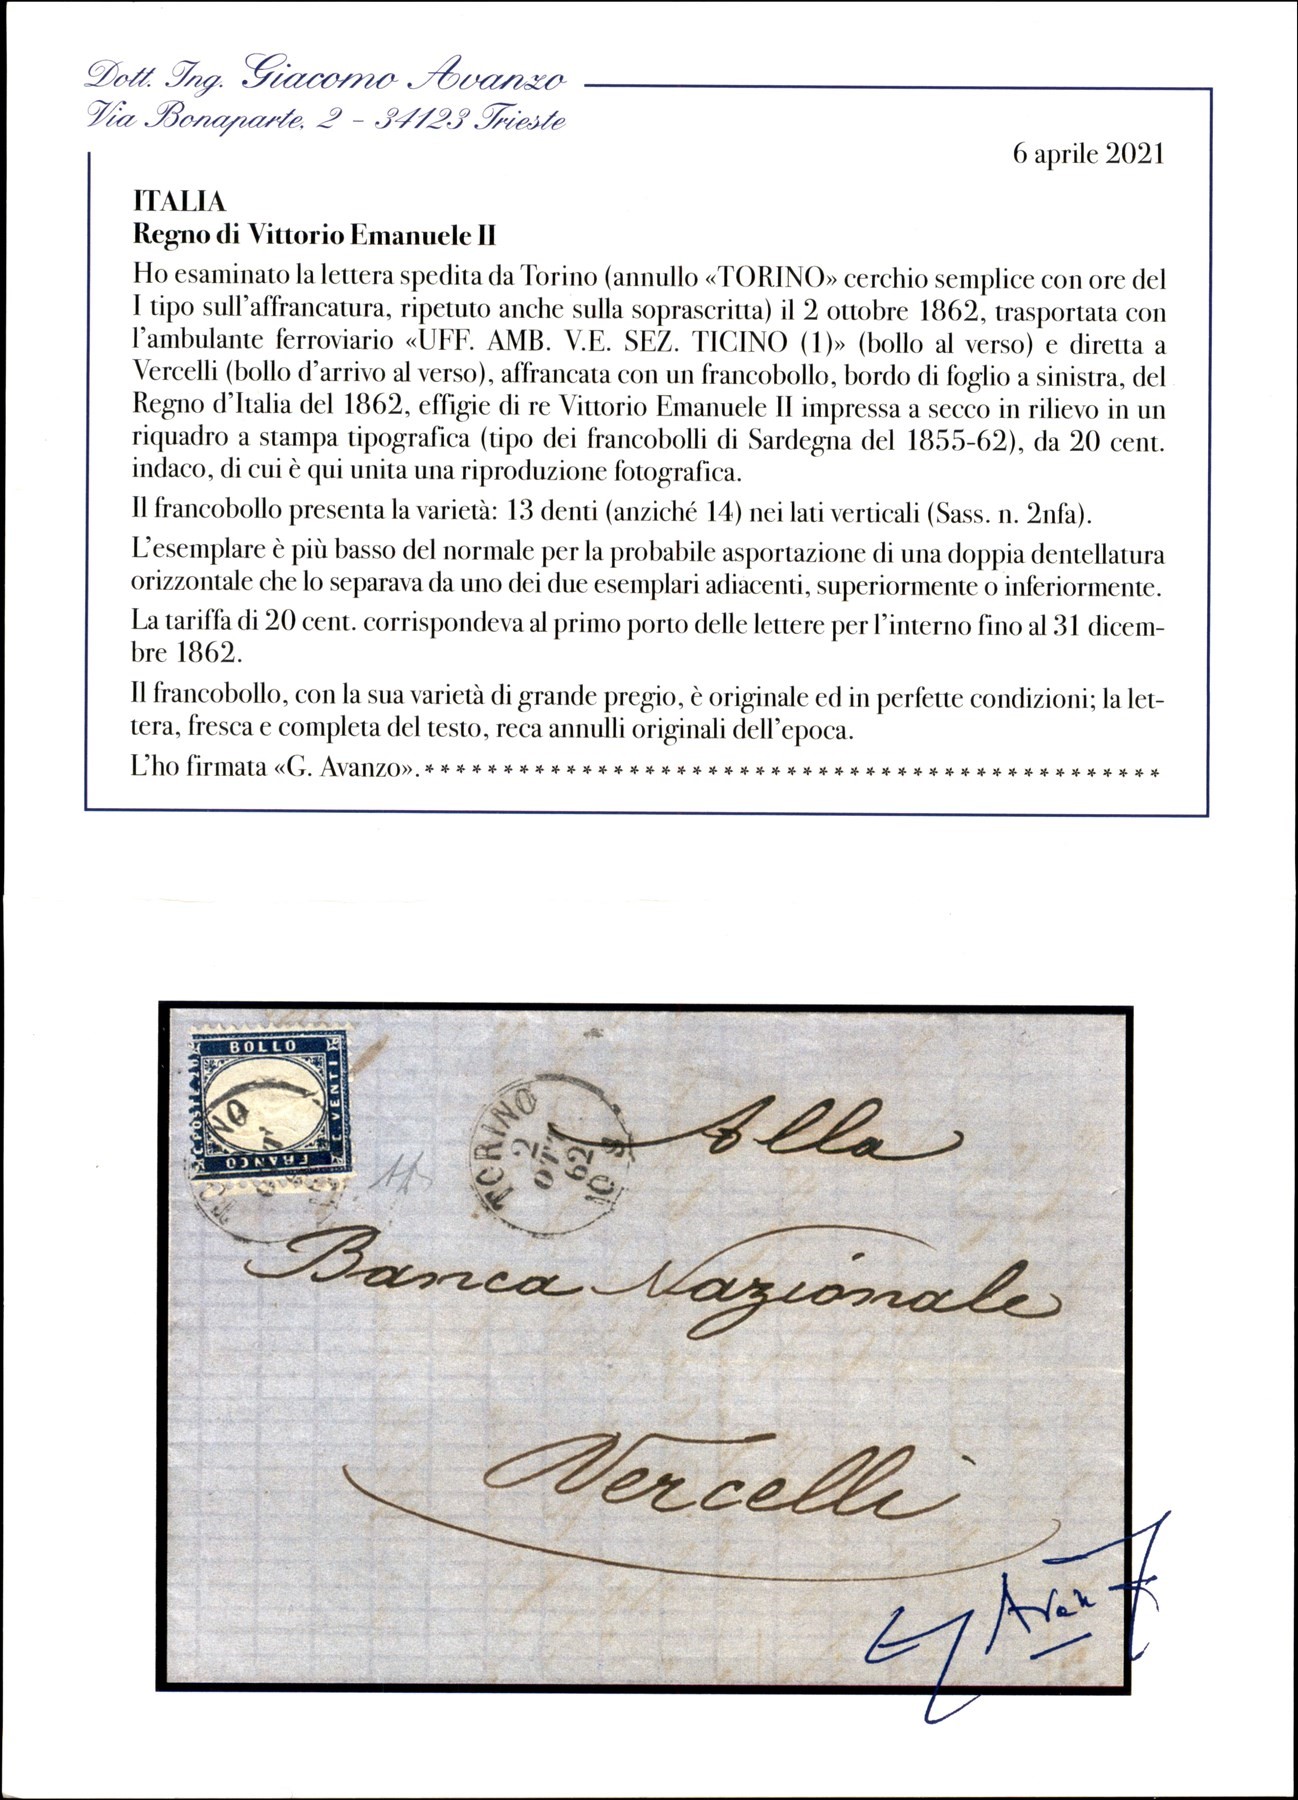 Dott. Ing. Giacomo Avanzo
Via Bonaparte, 2 – 34123 Trieste
6 aprile 2021
ITALIA
Regno di Vittorio Emanuele II
Ho esaminato la lettera spedita da Torino (annullo «TORINO» cerchio semplice con ore del
I tipo sull'affrancatura, ripetuto anche sulla soprascritta) il 2 ottobre 1862, trasportata con
l'ambulante ferroviario «UFF. AMB. V.E. SEZ. TICINO (1)» (bollo al verso) e diretta a
Vercelli (bollo d'arrivo al verso), affrancata con un francobollo, bordo di foglio a sinistra, del
Regno d'Italia del 1862, effigie di re Vittorio Emanuele II impressa a secco in rilievo in un
riquadro a stampa tipografica (tipo dei francobolli di Sardegna del 1855-62), da 20 cent.
indaco, di cui è qui unita una riproduzione fotografica.
Il francobollo presenta la varietà: 13 denti (anziché 14) nei lati verticali (Sass. n. 2nfa).
L'esemplare è più basso del normale per la probabile asportazione di una doppia dentellatura
orizzontale che lo separava da uno dei due esemplari adiacenti, superiormente o inferiormente.
La tariffa di 20 cent. corrispondeva al primo porto delle lettere per l'interno fino al 31 dicem-
bre 1862.
Il francobollo, con la sua varietà di grande pregio, è originale ed in perfette condizioni; la let-
tera, fresca e completa del testo, reca annulli originali dell'epoca.
L'ho firmata «G. Avanzo». * * * * * * * * * * * * * * * * * * * * * * * * * * * * * * * * * * * * * * * * * * * * * * *
BOLLO
C. POSTE 20
C. VENTI
FRANCO
TORINO
2
OTT
62
10 S
Alla
Banca Nazionale
Vercelli